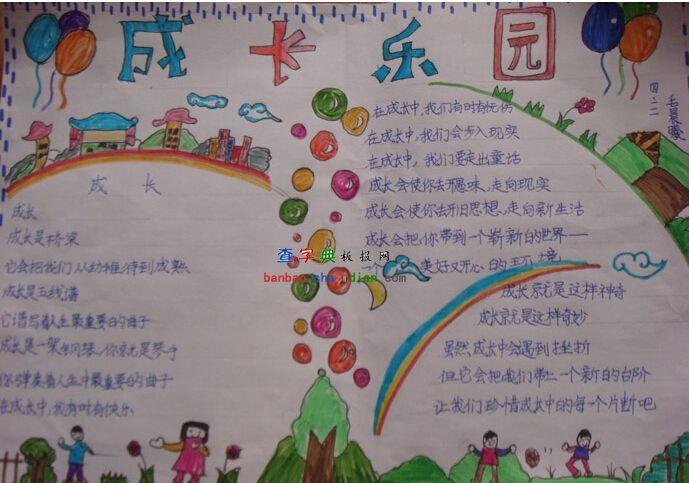 成长乐园
四.二
成长
成长
成长是桥梁
它会把我们从幼稚带到成熟
成长是五线谱
它谱写着人生最重要的曲子
成长是一架钢琴,你就是琴手
你弹奏着人生中最重要的曲子
在成长中,我有时有快乐
在成长中,我们有时有忧伤
在成长中,我们会步入现实
在成长中,我们要走出童话
成长会使你去开愚昧,走向现实
成长会使你去开旧思想,走向新生活
成长会把你带到一个崭新的世界——
一个 美好又开心的环境
成长就是这样神奇
成长就是这样奇妙
虽然成长中会遇到挫折
但它会把我们带上一个新的台阶
让我们珍惜成长中的每一个片断吧
查字典板报网
banbao.chazidian.com